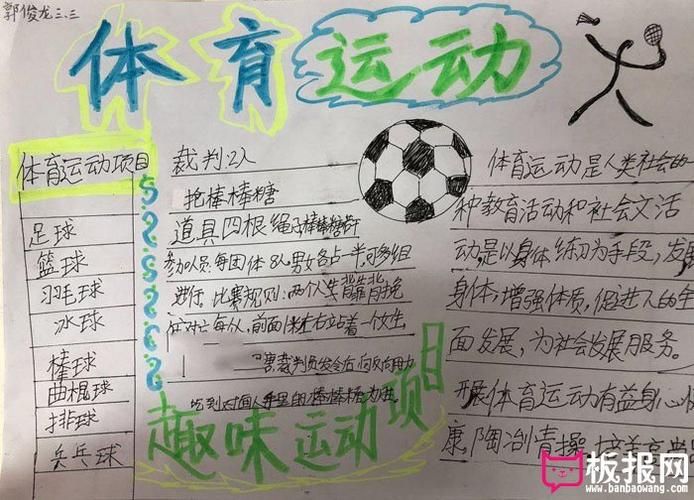 郭俊龙三.三
体育运动
体育运动项目
足球
篮球
羽毛球
冰球
棒球
曲棍球
排球
乒乓球
裁判:2人
抢棒棒糖
道具四根绳子棒棒糖
参加人员:每团体8人男女各占一半可多组
进行 比赛规则:两个人背靠背挽
前面1米左右站着一个女生
裁判员发令后,同
吃到对面人手里的棒棒糖为胜
趣味运动项目
体育运动是人类社会的
种教育活动和社会文活
动是以身体练习为手段,发展
身体,增强体质,促进人的全
面发展,为社会发展服务。
开展体育运动有益身心健
康,陶冶情操
板报网
www.banbaowang.com